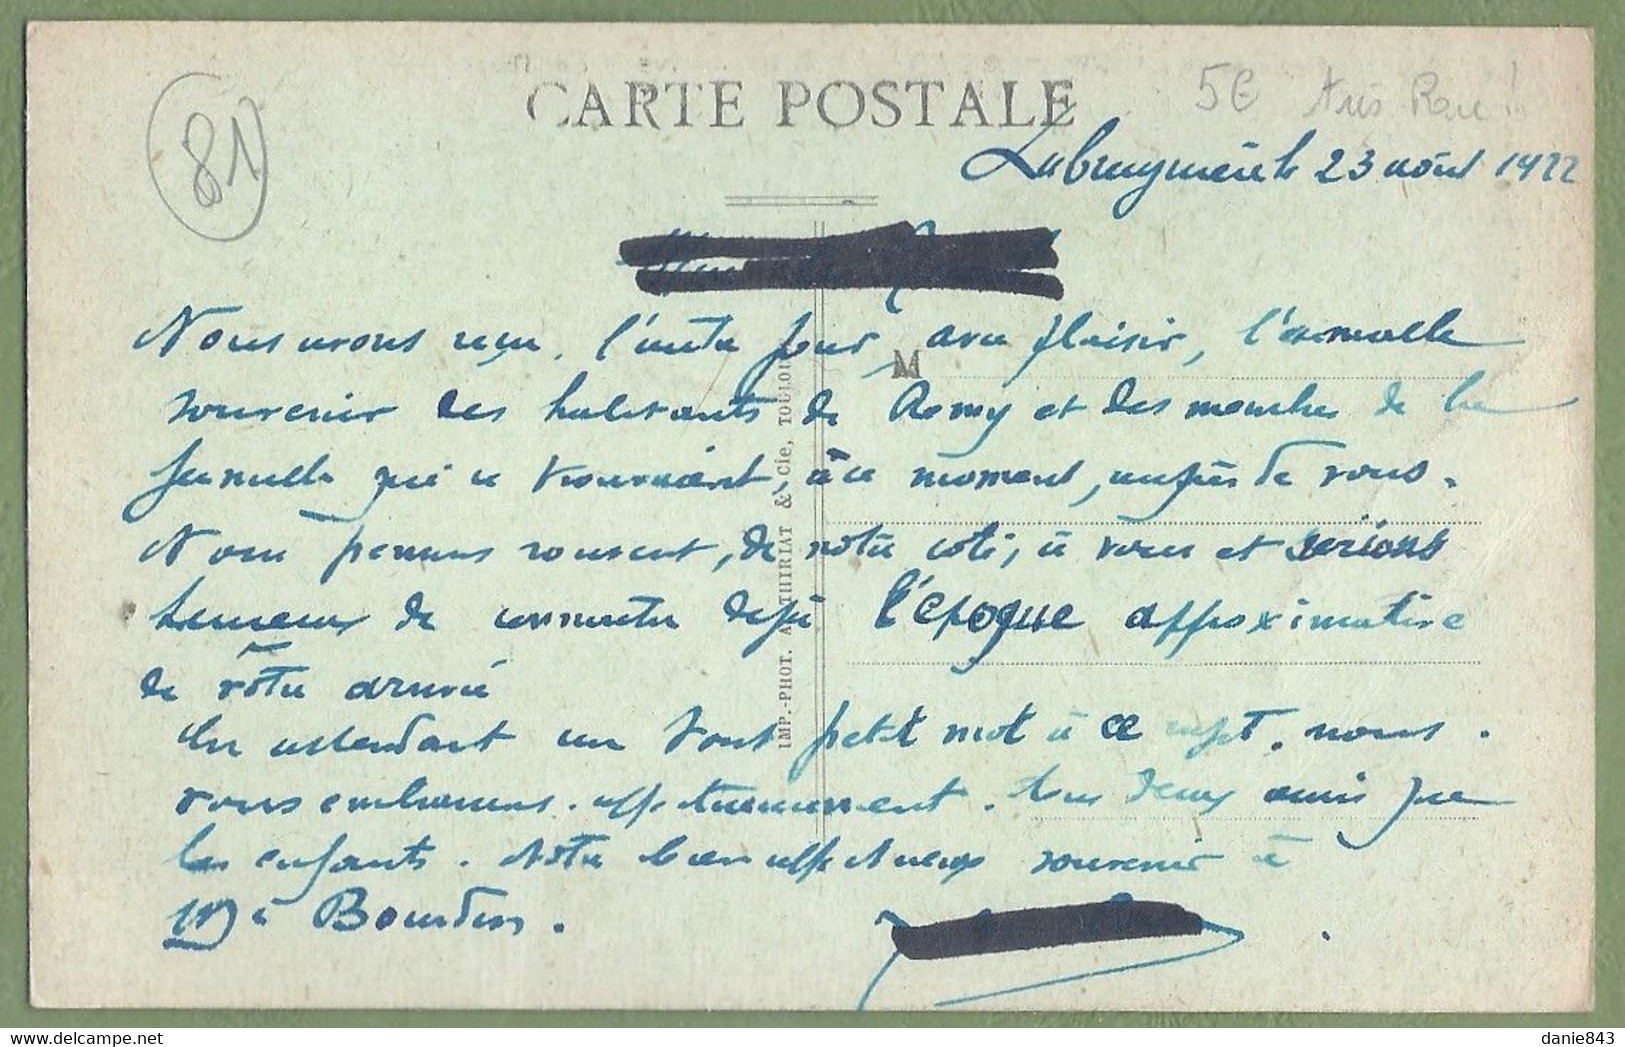 CARTE POSTALE
81
5€ très Rare !
Labruyuière le 23 août 1922
Nous avons reçu, l'autre jour, avec plaisir, l'aimable
M
souvenir des habitants de Remy et des membres de la
famille qui se trouvaient, à ce moment, auprès de vous.
Nous pensons souvent, de notre côté, à vous et serions
heureux de connaître déjà l'époque approximative
de vôtre arrivée
En attendant un tout petit mot à ce sujet, nous
vous embrassons affectueusement. tous deux ainsi que
les enfants. Notre bien affectueux souvenir à
Mme Bourdon.
IMP.-PHOT. A. THIRIAT & Cie, TOULOUSE
danie843